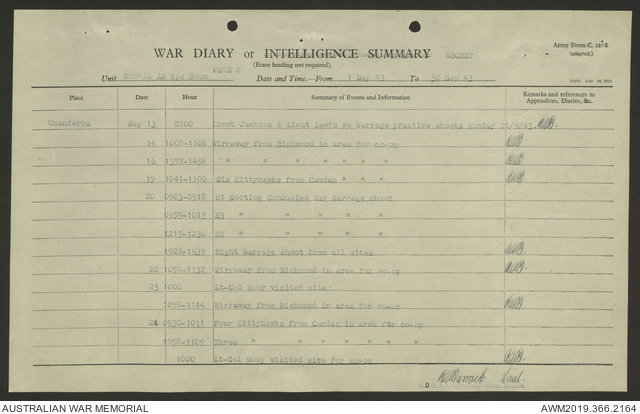 WAR DIARY or INTELLIGENCE SUMMARY SECRET
Army Form C. 2118
(adapted.)
(Erase heading not required).
PAGE 2
Unit Kembla AA Ops Room Date and Time.—From 1 Sep 43 To 30 Sep 43
Place Date Hour Summary of Events and Information Remarks and references to Appendices, Diaries, &c.
Unanderra Sep 13 2100 Lieut Jackson & Lieut Lewis re barrage practice shoots Monday 21/9/43.
14 1008-1108 Wirraway from Richmond in area for co-op
16 1357-1458 " " " " " " "
19 1041-1100 Six Kittyhawks from Camden " " "
20 0903-0918 H1 Section Conducted day barrage shoot
0959-1013 H3 " " " " "
1215-1230 H2 " " " " "
1928-1939 Night barrage shoot from all sites
22 1056-1132 Wirraway from Richmond in area for co-op
23 1000 Lt-Col visited site
1058-1144 Wirraway from Richmond in area for co-op
24 0930-1011 Four Kittyhawks from Camden in area for co-op
1058-1109 Three " " " " " " "
1000 Lt-Col visited site for co-op
Lieut.
AUSTRALIAN WAR MEMORIAL AWM2019.366.2164